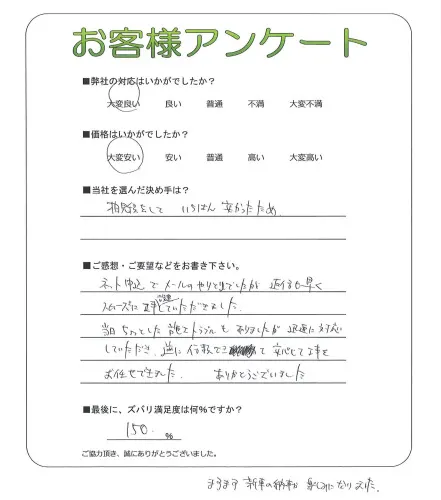 お客様アンケート
■弊社の対応はいかがでしたか？
大変良い 良い 普通 不満 大変不満
■価格はいかがでしたか？
大変安い 安い 普通 高い 大変高い
■当社を選んだ決め手は？
相見積をして いちばん 安かったため
■ご感想・ご要望などをお書き下さい。
ネット申込で メールのやりとりでしたが 返信も早く
スムーズに していただきました。
当日 ちょっとした トラブルも ありましたが 迅速に対応
していただき、逆に 信頼でき て 安心して工事を
お任せできました。 ありがとうございました
■最後に、ズバリ満足度は何％ですか？
150 ％
ご協力頂き、誠にありがとうございました。
ますます 新車の納車が 楽しみになりました。